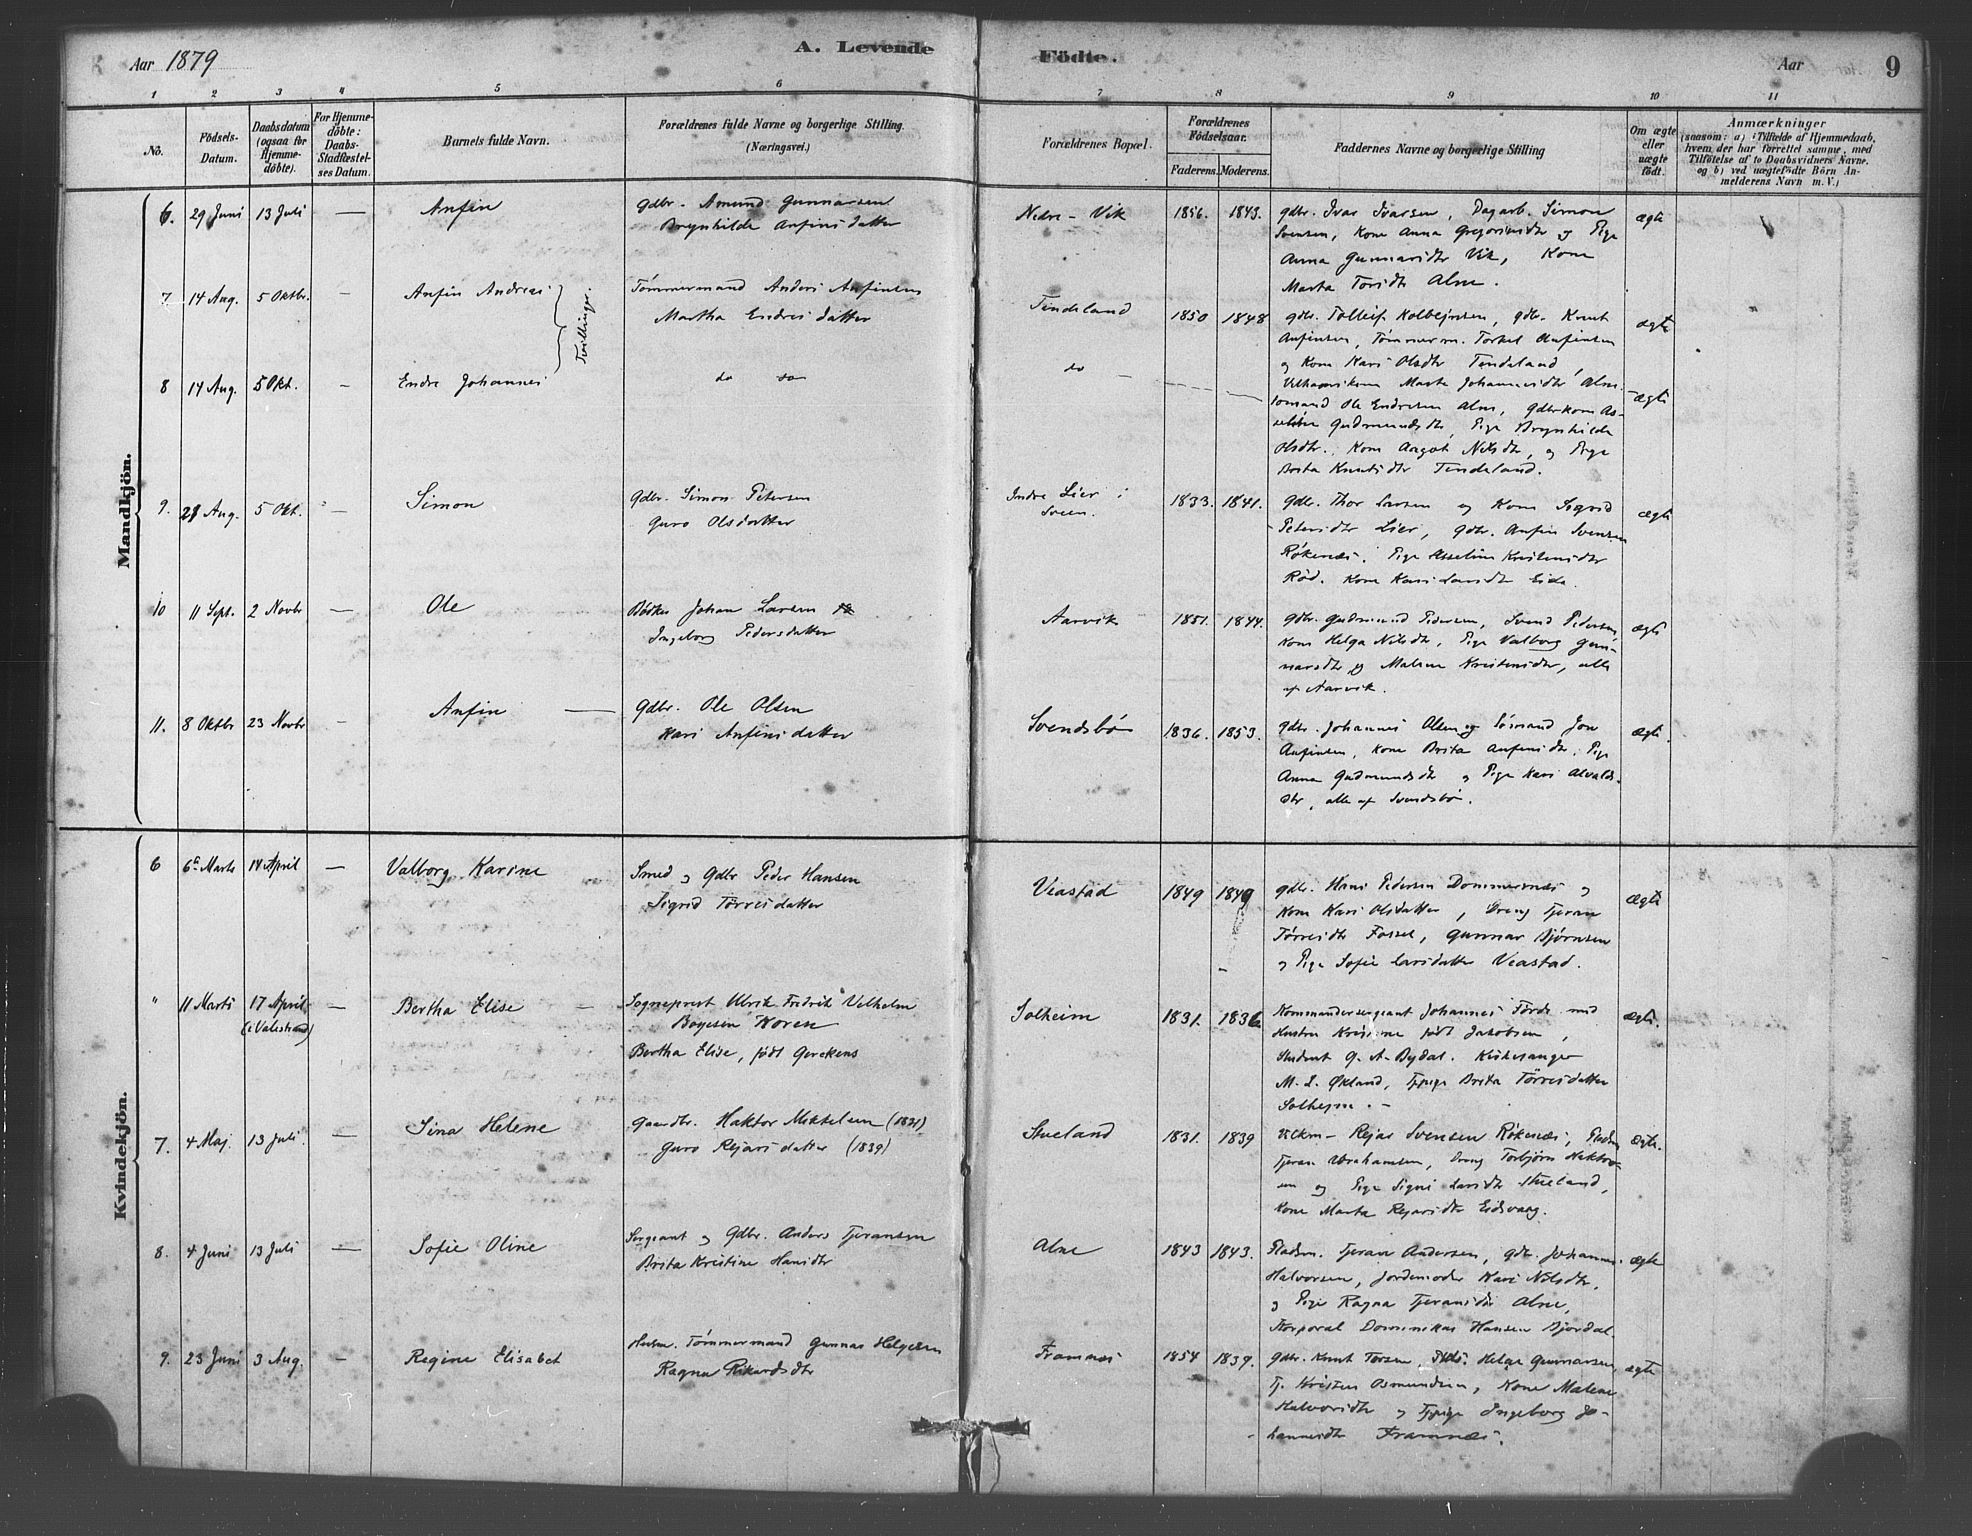 Aar 1879
A. Levende
Födte.
Aar
9
1 2 3 4 5 6 7 8 9 10 11
No.
Födsels-Datum.
Daabsdatum (ogsaa for Hjemmedöbte).
For Hjemmedöbte: Daabs-Stadfæstelses Datum.
Barnets fulde Navn.
Forældrenes fulde Navne og borgerlige Stilling. (Næringsvei.)
Forældrenes Bopæl.
Forældrenes Födselsaar.
Faderens. Moderens.
Faddernes Navne og borgerlige Stilling
Om ægte eller uægte født.
Anmærkninger
(saasom: a) i Tilfælde af Hjemmedaab, hvem der har forrettet samme, med Tilføielse af to Daabsvidners Navne. og b) ved uægtefødte Börn Anmelderens Navn m. V.)
Mandkjön.
6. 29 Juni 13 Juli — Anfin
Gdbr. Amund Gunnarsen
Brynhilde Anfinsdatter
Nedre-Vik 1856. 1843.
Gdbr. Ivar Ivarsen, Dagarb. Simon
Svensen, Kone Anna Gregoriusdtr og Pige
Anna Gunnarsdtr Vik, Kone
Marta Torsdtr Alne.
ægte
7 14 Aug. 5 Oktbr. — Anfin Andreas
Tvillinger.
Tømmermand Anders Anfinsen
Martha Endresdatter
Tindeland 1850 1848
gdbr. Tolleif Kolbejnsen, gdbr. Knut
Anfinsen, Tømmerm. Torkel Anfinsen
og Kone Kari Olsdtr Tindeland,
ægte
8 14 Aug. 5 Okt. — Endre Johannes
do do
do
Marta Johannesdtr Alne.
Ole Endresen Alne, Gdbrkone As-
Gudmundsdtr, Pige Brynhilde
Olsdtr. Kone Nilsdtr, og Pige
Brita Knutsdtr Tindeland.
ægte
9. 28 Aug. 5 Okt. — Simon
Gdbr. Simon Petersen
Guro Olsdatter
Indre Lier i
Sveen.
1833. 1841.
Gdbr. Thor Larsen og Kone Sigrid
Petersdtr Lier, Gdbr. Anfin Svensen
Røkenæs. Pige Asseline Kristensdtr
Rød. Kone Kari Larsdtr Eide.
ægte
10 11 Sept. 2 Novbr — Ole
Bødker Johan Larsen
Ingeborg Pedersdatter
Aarvik 1851. 1844.
Gdbr. Gudmund Pedersen, Svend Pedersen,
Kone Helga Nilsdtr, Pige Valborg Gun-
narsdtr og Malene Kristensdtr, alle
af Aarvik.
ægte
11. 8 Oktbr 23 Novbr — Anfin —
Gdbr. Ole Olsen
Kari Anfinsdatter
Svendsbø 1836. 1853.
Gdbr. Johannes Olsen og Sømand Jon
Anfinsen, Kone Brita Anfinsdtr, Pige
Anna Gudmundsdtr og Pige Kari Alvalds-
dtr, alle af Svendsbø.
ægte.
Kvindekjön.
6 6te Marts 14 April — Valborg Karine
Smed og Gdbr Peder Hansen
Sigrid Tørresdatter
Veastad 1849 1849
gdbr. Hans Pedersen Dommersnæs og
Kone Kari Olsdatter, Dreng Tjeran
Tørresdtr Fossel, Gunnar Bjørnsen
og Pige Sofie Larsdatter Veastad.
ægte
" 11 Marts 17 April — Bertha Elise —
(i Valestrand)
Sogneprest Ulrik Fredrik Vilhelm
Boyesen Koren
Bertha Elise, født Gerckens
Solheim 1831. 1836
Kommandersergeant Johannes Førde med
Hustru født Jakobsen,
Student G. A. Bydal. Kirkesanger
M. L. Økland, Tjpige Brita Tørresdatter
Solhejm. —
ægte.
7. 4 Maj 13 Juli. — Sina Helene
Gaardbr. Haktor Mikkelsen (1831)
Guro Rejarsdatter (1839)
Stueland 1831. 1839
Rejar Svensen Røkenæs,
Tjeran Abrahamsen, Dreng Torbjørn Haktor-
sen og Pige Signi Larsdtr Stueland,
Kone Marta Rejarsdtr Eidsvaag.
ægte.
8. 4 Juni 13 Juli — Sofie Oline
Sergeant og Gdbr. Anders Tjeransen
Brita Kristine Hansdtr
Alne 1843 1843.
Pladsm. Tjeran Andersen, gdbr. Johannes
Halvorsen, Jordemoder Kari Nilsdtr,
og Pige Ragna Tjeransdtr Alne,
Korporal Dominikus Hansen Bjordal.
ægte
9. 23 Juni 3 Aug. — Regine Elisabet
Husm. Tømmermand Gunnar Helgesen
Ragna Rikardsdtr
Framnæs 1854 1839.
Gdbr. Knut Torsen, Helge Gunnarsen,
Tj. Kristen Osmundsen, Kone Malene
Halvorsdtr og Tjpige Ingeborg Jo-
hannesdtr Framnæs.
ægte